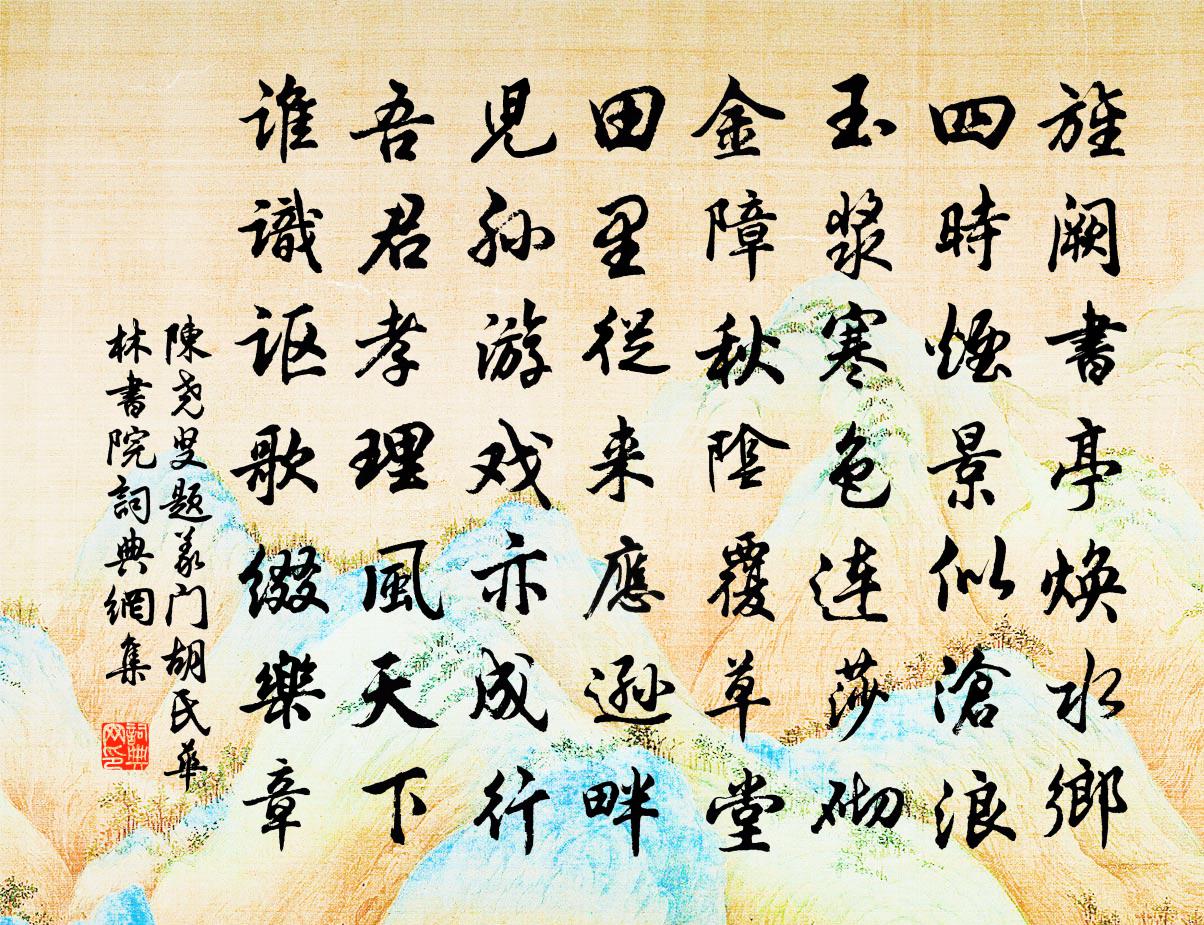 旌阙書亭焕水鄉
四時煙景似滄浪
玉漿寒色连莎砌
金障秋陰覆草堂
田里從来應遜畔
児孙游戏亦成行
吾君孝理風天下
谁識讴歌缀樂章
陳尧叟题义门胡氏華
林書院詞典網集
詞典
网印